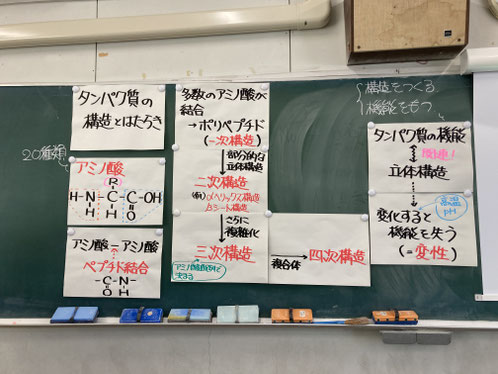 タンパク質の
構造とはたらき
20種類
アミノ酸
R
H-N-C-C-OH
H H O
アミノ酸-アミノ酸
ペプチド結合
-C-N-
O H
多数のアミノ酸が
結合
→ポリペプチド
(一次構造)
部分的な
立体構造
二次構造
(例) αヘリックス構造
βシート構造
さらに
複雑化
三次構造
複合体
四次構造
構造をつくる
機能をもつ
タンパク質の機能
関連!
立体構造
高温
pH
変化すると
機能を失う
(=変性)